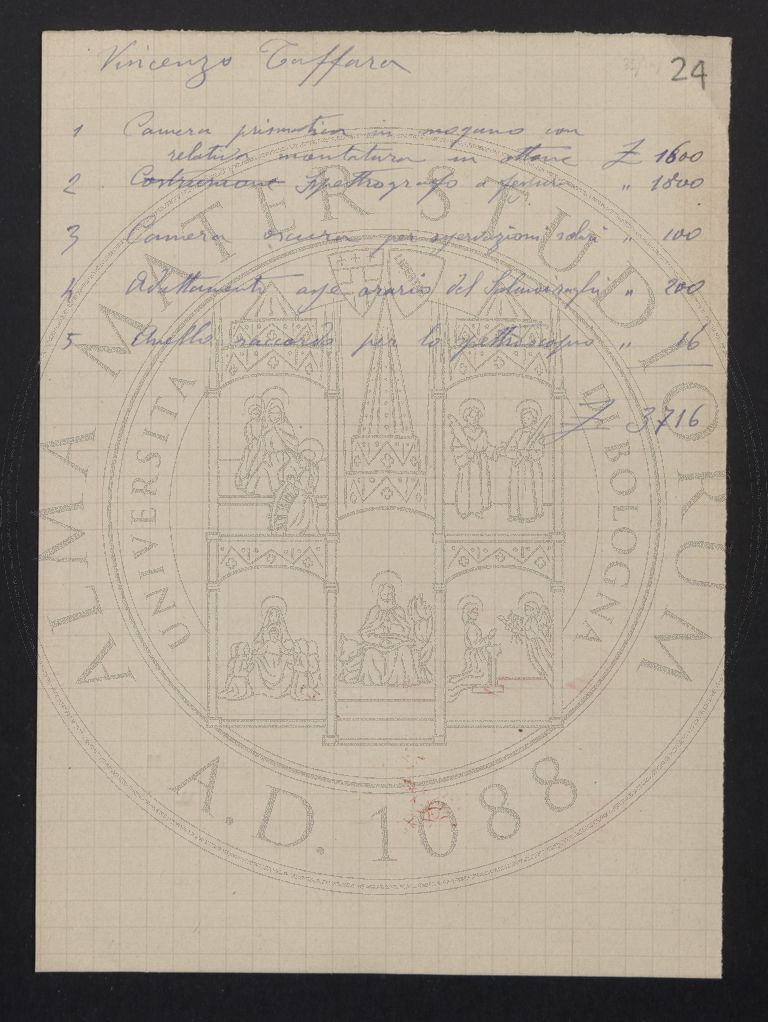 24
Vincenzo Taffara
1 Camera prismatica in mogano con
relativa montatura in ottone £ 1600
2 Costruzione Spettrografo a fessura " 1800
3 Camera oscura per osservazioni solari " 100
4 Adattamento asse orario del " 200
5 Anello raccordo per lo spettroscopio " 16
£ 3716
ALMA MATER STUDIORUM
UNIVERSITÀ DI BOLOGNA
LIBERTAS
A.D. 1088